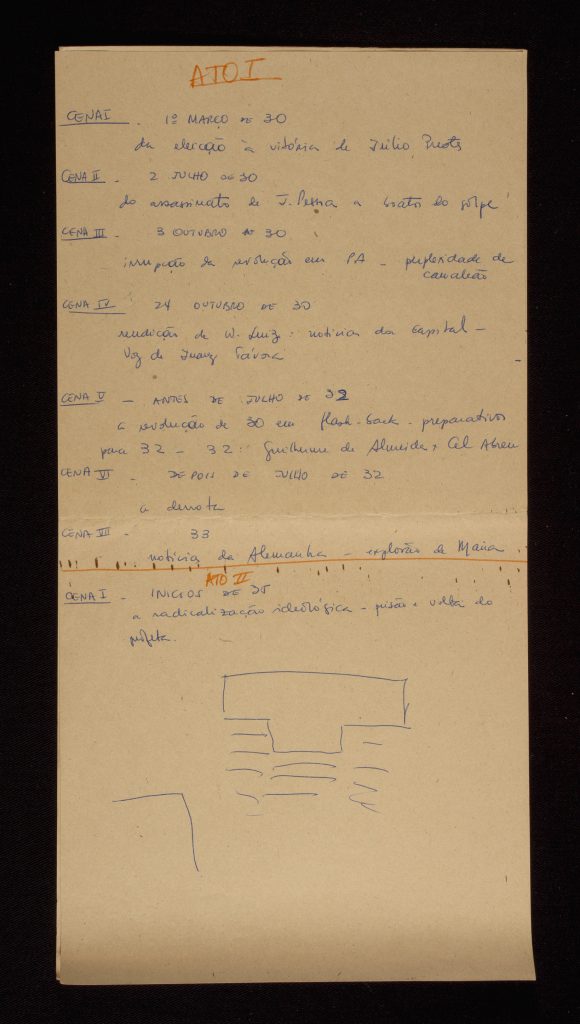 ATO I
CENA I - 1º MARÇO DE 30
da eleição à vitória de Júlio Prestes
CENA II - 2 JULHO DE 30
do assassinato de J. Pessoa a boatos do golpe
CENA III - 3 OUTUBRO DE 30
irrupção da revolução em PA - perplexidade de
camaleão
CENA IV - 24 OUTUBRO DE 30
rendição de W. Luiz: notícias da Capital -
Voz de Juarez Távora
CENA V - ANTES DE JULHO DE 32
a revolução de 30 em flash-back - preparativos
para 32 - 32: Guilherme de Almeida e Cel Abreu
CENA VI - DEPOIS DE JULHO DE 32
a derrota
CENA VII - 33
notícias da Alemanha - explosão de Maria
ATO II
CENA I - INICIOS DE 35
a radicalização ideológica - prisão e volta do
profeta.